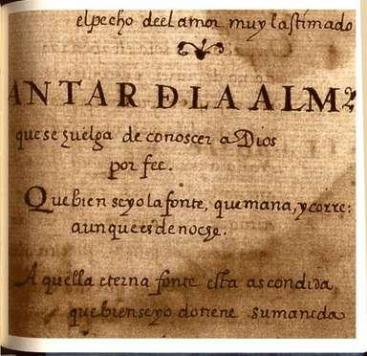 el pecho deel amor muy lastimado
ANTAR DLA ALMA
que se guelga de conoscer a Dios
por fee.
Que bien se yo la fonte, que mana, y corre:
aunque es de noche.
Aquella eterna fonte esta ascondida
que bien se yo do tiene su manida